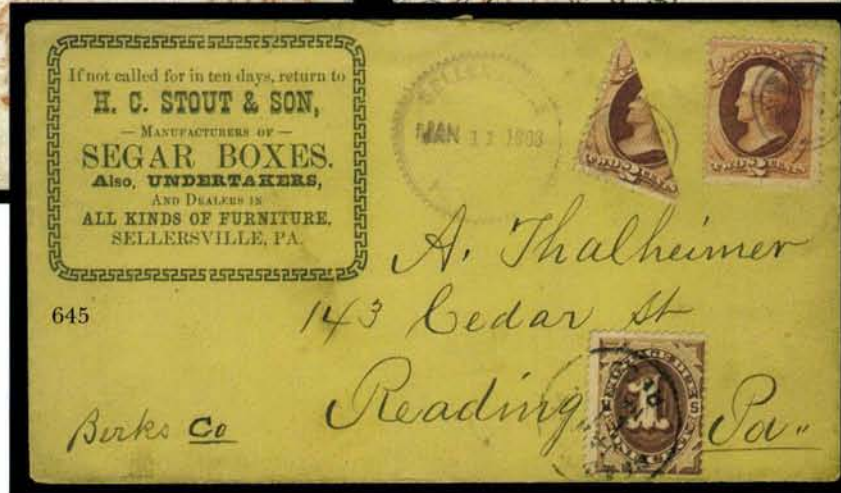 If not called for in ten days, return to
H. C. STOUT & SON,
— MANUFACTURERS OF —
SEGAR BOXES.
Also, UNDERTAKERS,
AND DEALERS IN
ALL KINDS OF FURNITURE,
SELLERSVILLE, PA.
JAN
TWO 2 CENTS
TWO 2 CENTS
A. Thalheimer
645
143 Cedar St
Reading, Pa.
Berks Co
1